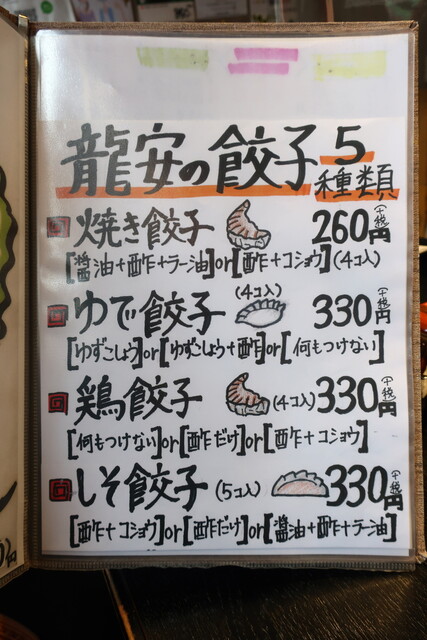 龍安の餃子 5種類
焼き餃子 260円 (+税)
[醤油+酢+ラー油]or[酢+コショウ](4コ入)
ゆで餃子 (4コ入) 330円 (+税)
[ゆずこしょう]or[ゆずこしょう+酢]or[何もつけない]
鶏餃子 (4コ入) 330円 (+税)
[何もつけない]or[酢だけ]or[酢+コショウ]
しそ餃子 (5コ入) 330円 (+税)
[酢+コショウ]or[酢だけ]or[醤油+酢+ラー油]